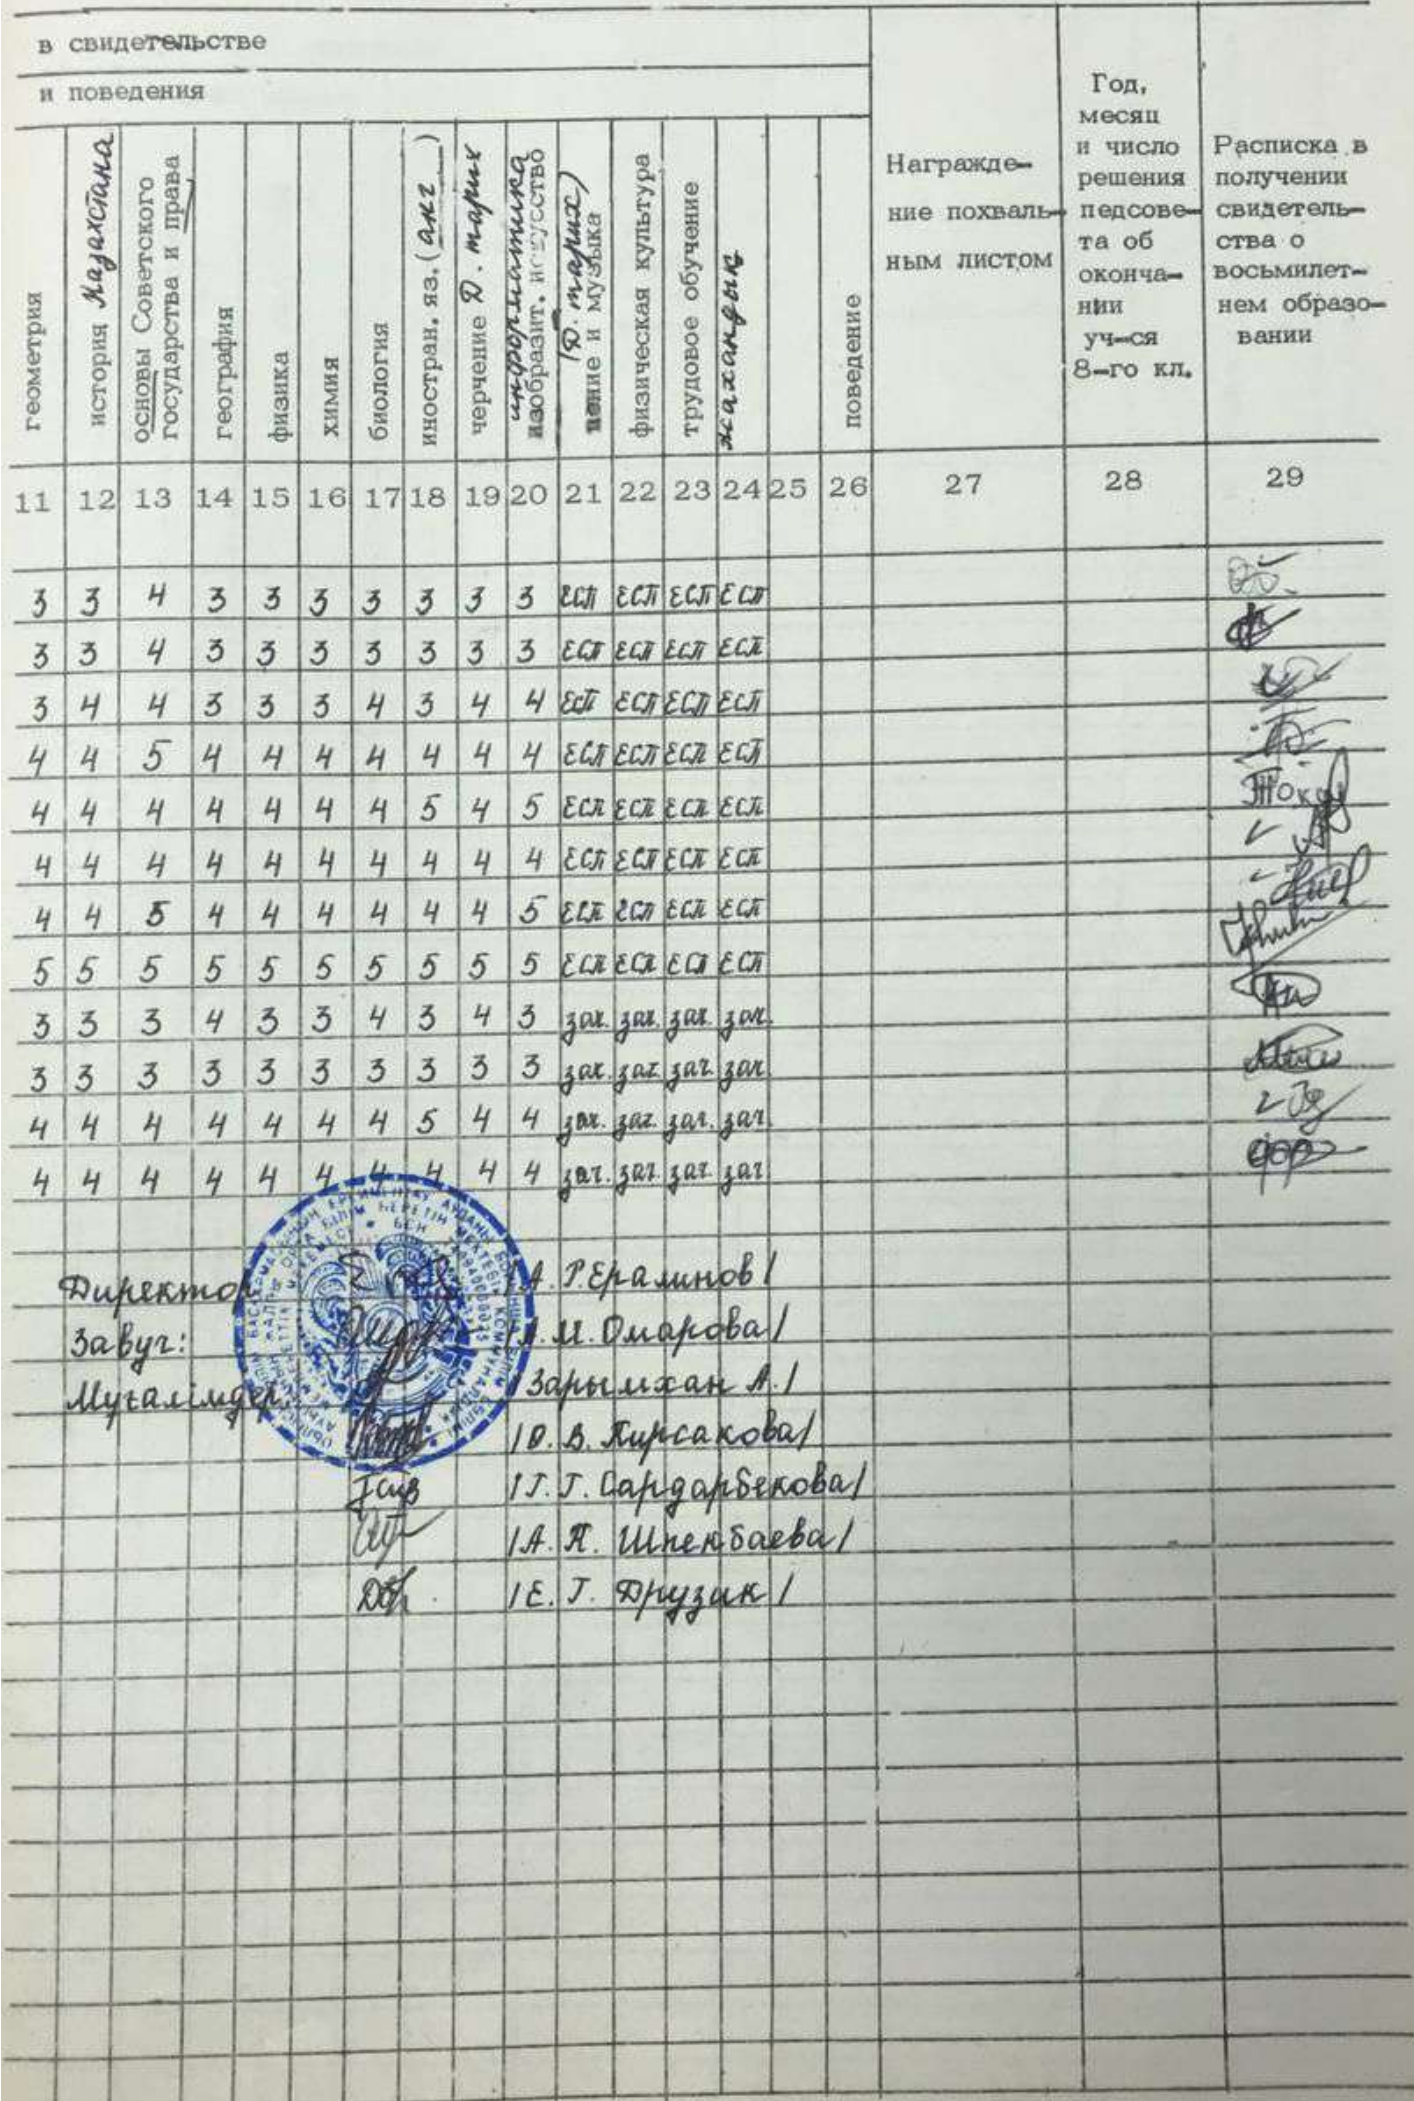 в свидетельстве
и поведения
геометрия
история Казахстана
основы Советского
государства и права
география
физика
химия
биология
иностран. яз. (анг)
черчение Д. тарих
информатика
изобразит. искусство
(Д. тарих)
пение и музыка
физическая культура
трудовое обучение
жахандық
поведение
Награжде-
ние похваль-
ным листом
Год,
месяц
и число
решения
педсове-
та об
оконча-
нии
уч-ся
8-го кл.
Расписка в
получении
свидетель-
ства о
восьмилет-
нем образо-
вании
11 12 13 14 15 16 17 18 19 20 21 22 23 24 25 26 27 28 29
3 3 4 3 3 3 3 3 3 3 есп есп есп есп
3 3 4 3 3 3 3 3 3 3 есп есп есп есп
3 4 4 3 3 3 4 3 4 4 есп есп есп есп
4 4 5 4 4 4 4 4 4 4 есп есп есп есп
4 4 4 4 4 4 4 5 4 5 есп есп есп есп
4 4 4 4 4 4 4 4 4 4 есп есп есп есп
4 4 5 4 4 4 4 4 4 5 есп есп есп есп
5 5 5 5 5 5 5 5 5 5 есп есп есп есп
3 3 3 4 3 3 4 3 4 3 зач. зач. зач. зач.
3 3 3 3 3 3 3 3 3 3 зач. зач зач. зач
4 4 4 4 4 4 4 5 4 4 зач. зач. зач. зач.
4 4 4 4 4 4 4 4 4 4 зач. зач. зач. зач
Директор /А. Р. Ералинов/
Завуч: /А. М. Омарова/
Мұғалімдер: /Зарымхан А./
/О. В. Кирсакова/
/Г. Г. Сардарбекова/
/А. К. Шпекбаева/
/Е. Г. Друзик/